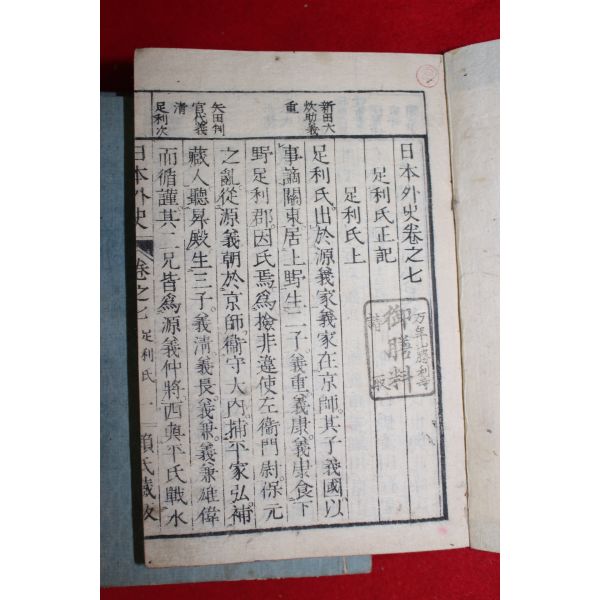 日本外史卷之七
足利氏正記
足利氏上
足利氏出於源義家義家在京師其子義國以
事謫關東居上野生二子義重義康義康食下
野足利郡因氏焉爲檢非違使左衞門尉保元
之亂從源義朝於京師衞守大內捕平家弘補
藏人聽昇殿生三子義淸義長義兼義兼雄偉
而循謹其二兄皆爲源義仲將西與平氏戰水
新田大
炊助義
重
矢田判
官代義
清
足利次
日本外史
卷之七
足利氏
一
賴氏藏
御膳料